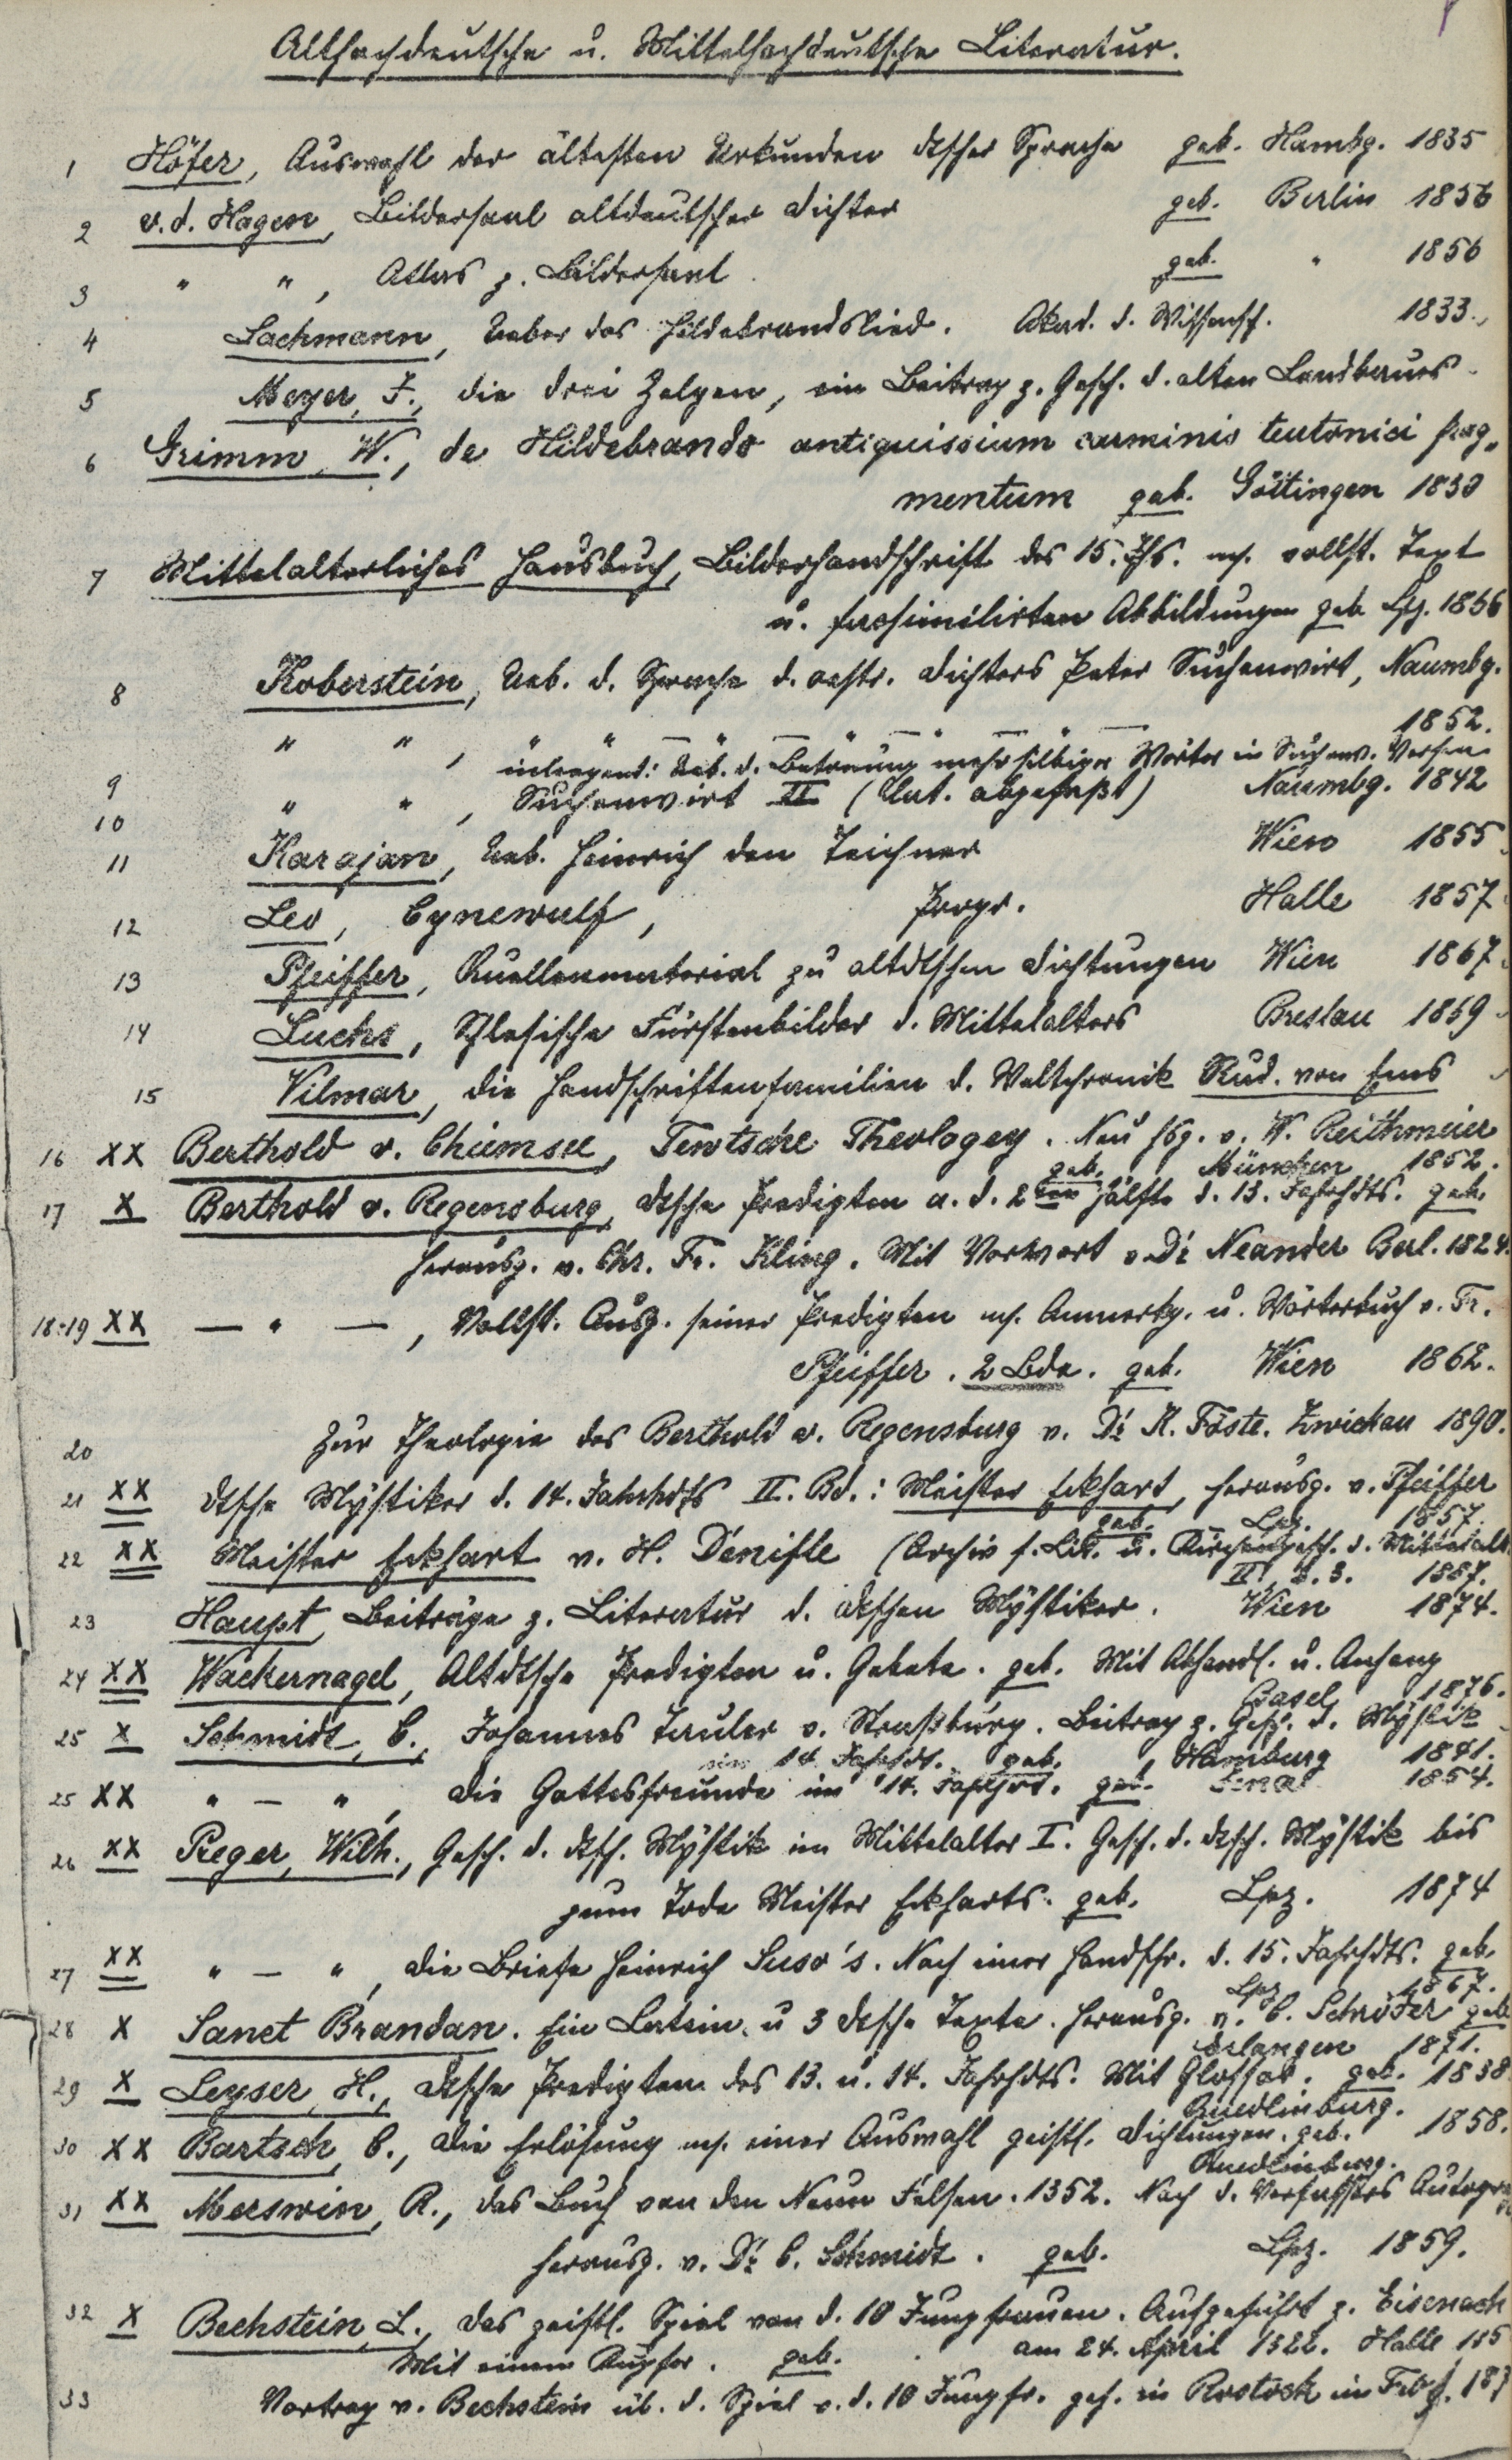 Althochdeutsche u. Mittelhochdeutsche Literatur.
1 Höfer, Auswahl der ältesten Urkunden dtscher Sprache geb. Hambg. 1835
2 v. d. Hagen, Bildersaal altdeutscher Dichter geb. Berlin 1856
3 " ", Atlas z. Bildersaal geb. " 1856
4 Lachmann, Ueber das Hildebrandslied. Akad. d. Wissensch. 1833.
5 Meyer, J., die drei Zelgen, ein Beitrag z. Gesch. d. alten Landbaues
6 Grimm, W., de Hildebrando antiquissium carminis teutonici frag„
mentum geb. Göttingen 1830
7 Mittelalterliches Hausbuch, Bilderhandschrift des 15. Jhs. m. vollst. Text
u. facsimilirten Abbildungen geb. Lpz. 1866
8 Koberstein, Ueb. d. Sprache d. oestr. Dichters Peter Suchenwirt, Naumbg.
1852.
9 " ", " " — " — " — " —
inliegend: Ueb. d. Betonung mehrsilbiger Wörter in Suchenw. Versen
10 " ", Suchenwirt II (Lat. abgefaßt) Naumbg. 1842
11 Karajan, Ueb. Heinrich den Teichner Wien 1855
12 Leo, Cynewulf, Progr. Halle 1857
13 Pfeiffer, Quellenmaterial zu altdtschen Dichtungen Wien 1867
14 Luchs, Schlesische Fürstenbilder d. Mittelalters Breslau 1869
15 Vilmar, die Handschriftenfamilien d. Weltchronik Rud. von Ems
16 XX Berthold v. Chiemsee, Tewtsche Theologey. Neu hsg. v. W. Reithmeier
geb. München 1852.
17 X Berthold v. Regensburg, dtsche Predigten a. d. 2ten Hälfte d. 13. Jahrhdts. geb.
herausg. v. Chr. Fr. Kling. Mit Vorwort v. Dr. Neander Berl. 1824.
18-19 XX — " —, Vollst. Ausg. seiner Predigten m. Anmerkg. u. Wörterbuch v. Fr.
Pfeiffer. 2 Bde. geb. Wien 1862.
20 Zur Theologie des Berthold v. Regensburg v. Dr. K. Föste. Zwickau 1890.
21 XX Dtsche Mystiker d. 14. Jahrhdts II. Bd.: Meister Eckhart, herausg. v. Pfeiffer
geb. Lpz. 1857.
22 XX Meister Eckhart v. H. Denifle (Archiv f. Lit. u. Kirchengesch. d. Mittelalt.
II, 2. 3. 1887.
23 Haupt, Beiträge z. Literatur d. dtschen Mystiker. Wien 1874.
24 XX Wackernagel, Altdtsche Predigten u. Gebete. geb. Mit Abhandl. u. Anhang
Basel 1876.
25 X Schmidt, C., Johannes Tauler v. Straßburg. Beitrag z. Gesch. d. Mystik
im 14. Jahrhdt. geb. Hamburg 1841.
25 XX " — ", Die Gottesfreunde im 14. Jahrhdt. geb. Jena 1854.
26 XX Preger, Wilh., Gesch. d. dtsch. Mystik im Mittelalter I. Gesch. d. dtsch. Mystik bis
zum Tode Meister Eckharts. geb. Lpz. 1874
27 XX " — ", Die Briefe Heinrich Suso's. Nach einer Handschr. d. 15. Jahrhdts. geb.
Lpz. 1867.
28 X Sanct Brandan. Ein Latein. u 3 dtsche Texte. herausg. v. C. Schröder geb
Erlangen 1871.
29 X Leyser, H., Dtsche Predigten des 13. u. 14. Jahrhdts. Mit Glossar. geb. 1838
Quedlinburg.
30 XX Bartsch, C., Die Erlösung m. einer Auswahl geistl. Dichtungen. geb. 1858.
Quedlinburg.
31 XX Merswin, R., das Buch von den Neun Felsen. 1352. Nach d. Verfassers Autogra
herausg. v. Dr. C. Schmidt. geb. Lpz. 1859.
32 X Bechstein, L., das geistl. Spiel von d. 10 Jungfrauen. Aufgeführt z. Eisenach
Mit einem Kupfer. geb. am 24. April 1322. Halle 185
33 Vortrag v. Bechstein üb. d. Spiel v. d. 10 Jungfr. geh. in Rostock im Febr. 187